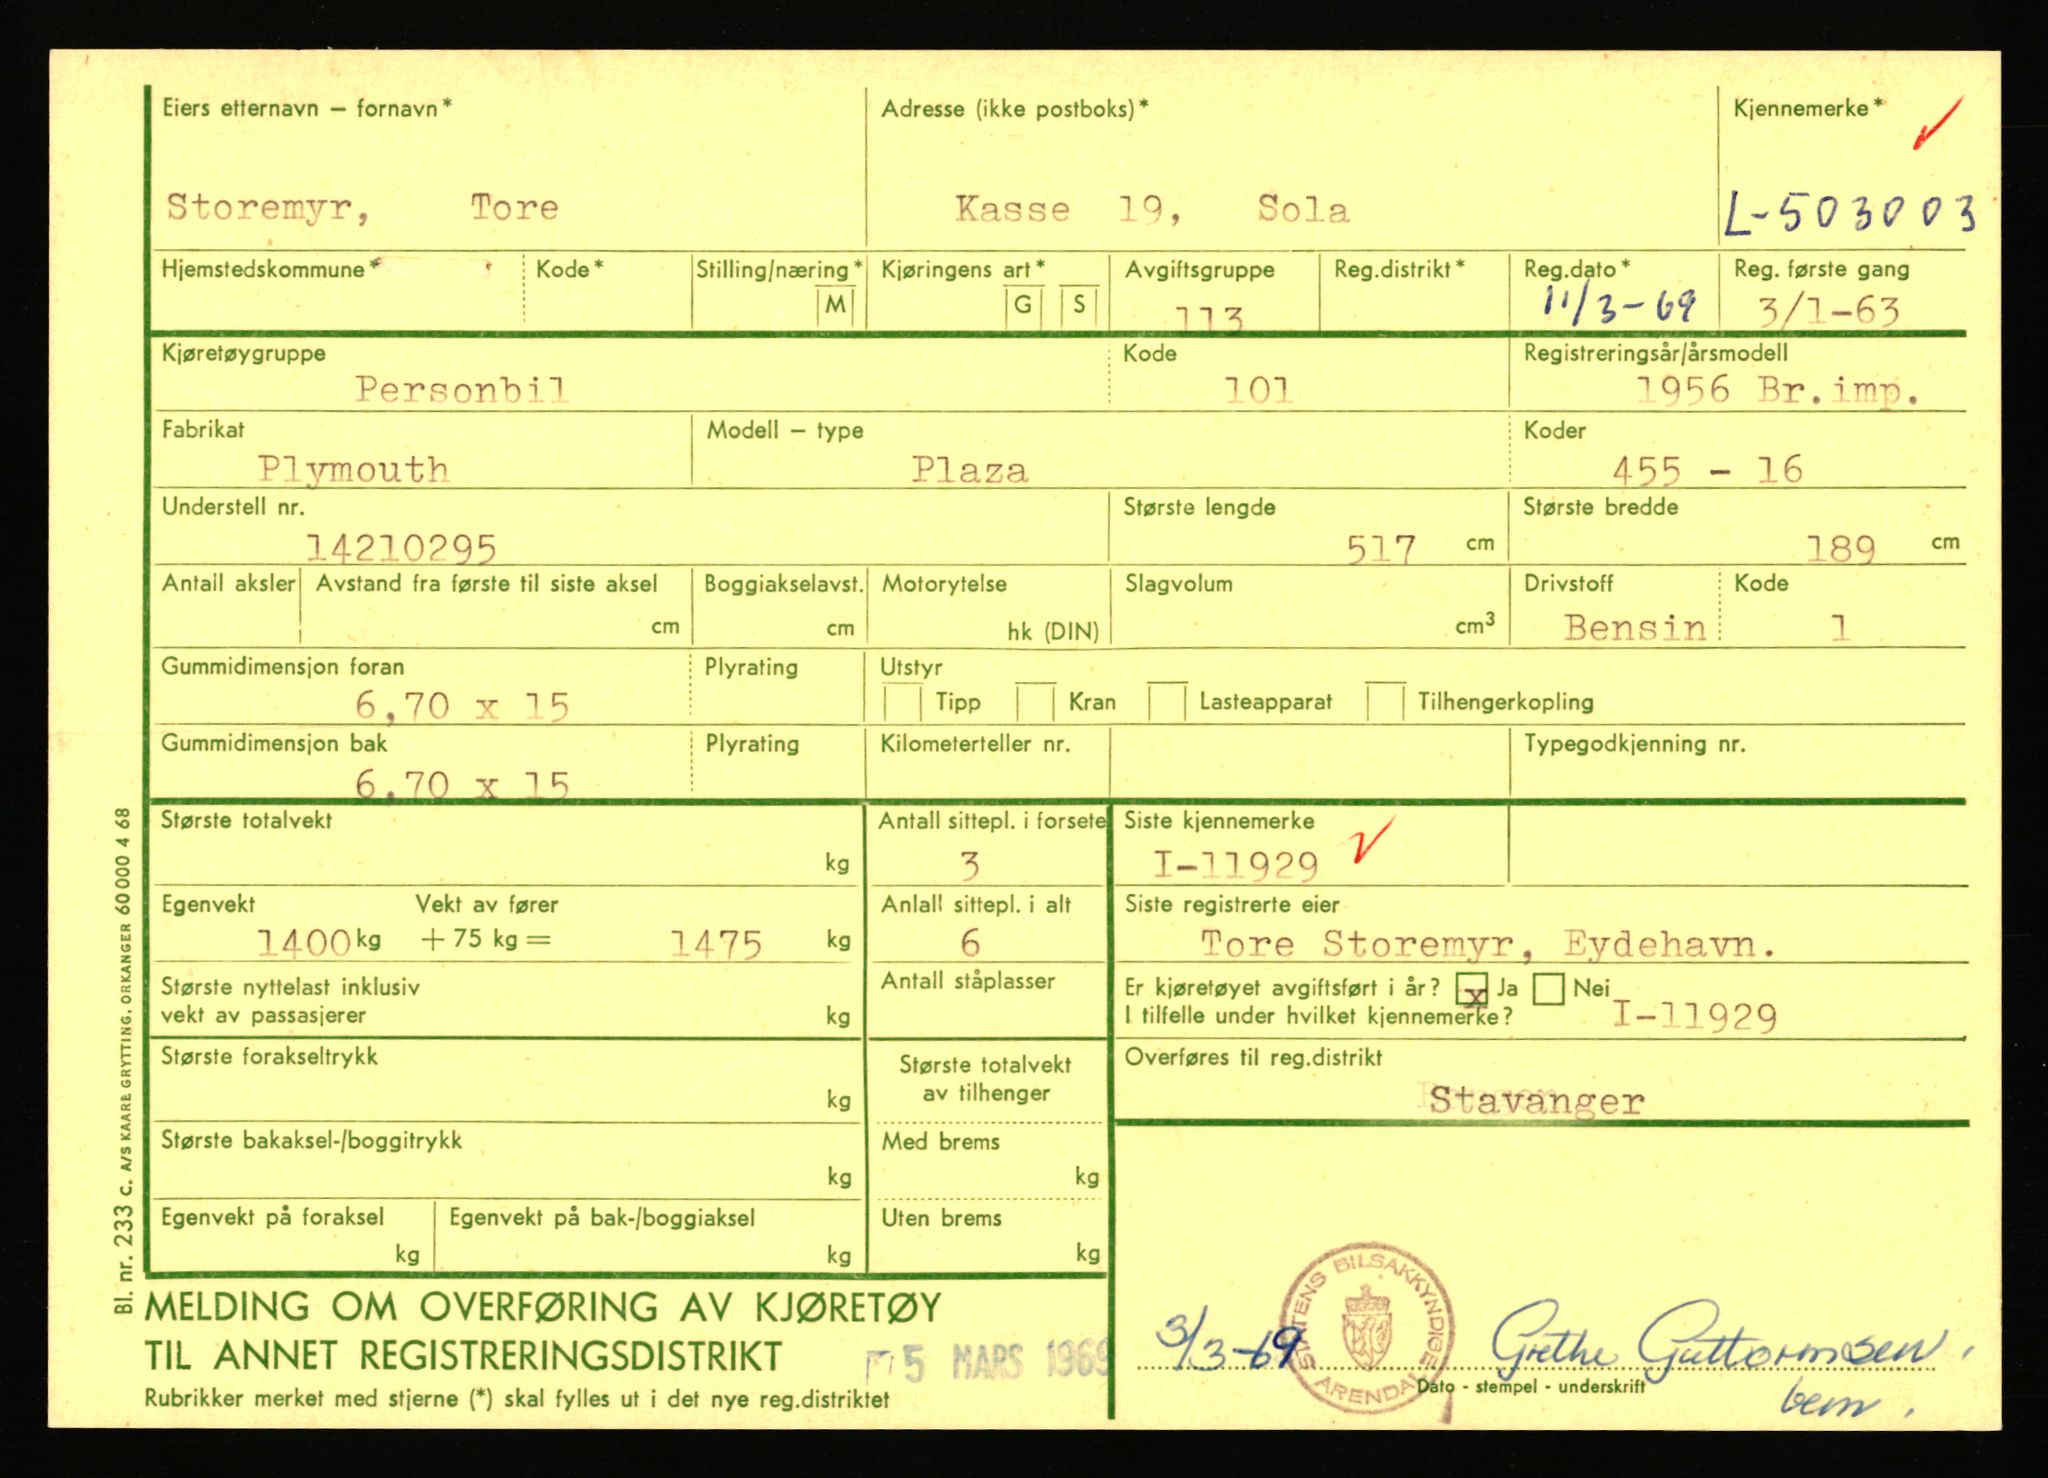 Eiers etternavn – fornavn* Adresse (ikke postboks)* Kjennemerke*
Storemyr, Tore Kasse 19, Sola L-503003
Hjemstedskommune* Kode* Stilling/næring* Kjøringens art* Avgiftsgruppe Reg.distrikt* Reg.dato* Reg. første gang
M G S 113 11/3-69 3/1-63
Kjøretøygruppe Kode Registreringsår/årsmodell
Personbil 101 1956 Br.imp.
Fabrikat Modell – type Koder
Plymouth Plaza 455 - 16
Understell nr. Største lengde Største bredde
14210295 517 cm 189 cm
Antall aksler Avstand fra første til siste aksel Boggiakselavst. Motorytelse Slagvolum Drivstoff Kode
cm cm hk (DIN) cm³ Bensin 1
Gummidimensjon foran Plyrating Utstyr
6,70 x 15 Tipp Kran Lasteapparat Tilhengerkopling
Gummidimensjon bak Plyrating Kilometerteller nr. Typegodkjenning nr.
6,70 x 15
Største totalvekt Antall sittepl. i forsete Siste kjennemerke
kg 3 I-11929
Egenvekt Vekt av fører Anlall sittepl. i alt Siste registrerte eier
1400 kg + 75 kg = 1475 kg 6 Tore Storemyr, Eydehavn.
Største nyttelast inklusiv Antall ståplasser Er kjøretøyet avgiftsført i år? x Ja Nei
vekt av passasjerer kg I tilfelle under hvilket kjennemerke? I-11929
Største forakseltrykk Største totalvekt Overføres til reg.distrikt
kg av tilhenger Stavanger
Største bakaksel-/boggitrykk Med brems
kg kg
Egenvekt på foraksel Egenvekt på bak-/boggiaksel Uten brems
kg kg kg
MELDING OM OVERFØRING AV KJØRETØY
TIL ANNET REGISTRERINGSDISTRIKT
5 MARS 1969
Rubrikker merket med stjerne (*) skal fylles ut i det nye reg.distriktet
STATENS BILSAKKYNDIGE
ARENDAL
3/3-69 Grethe Guttormsen.
Dato - stempel - underskrift
bem.
Bl. nr. 233 C. A/S KAARE GRYTTING, ORKANGER 60 000 4 68